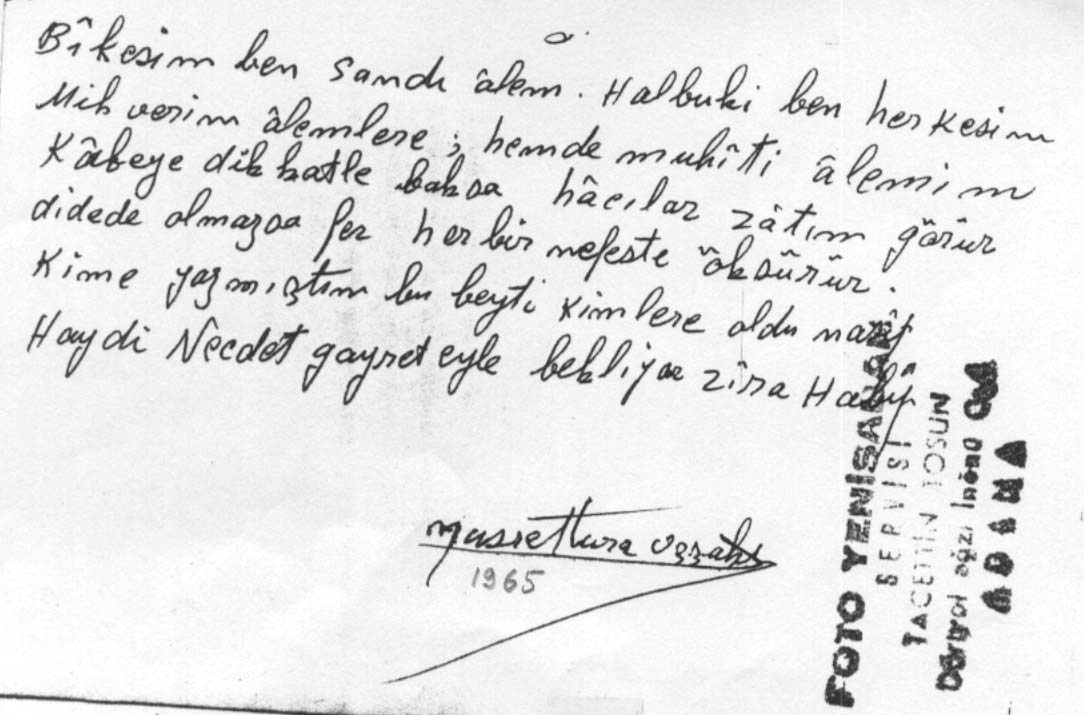 Bîkesim ben sandı âlem. Halbuki ben herkesim
Mihverim âlemlere; hemde muhîti âlemim
Kâbeye dikkatle baksa hâcılar zâtım görür
didede olmazsa fer her bir nefeste öksürür.
Kime yazmıştım bu beyti kimlere oldu nasîp
Haydi Necdet gayret eyle bekliyor zîra Habîp
1965
FOTO
SERVİSİ
TACETTİN TOSUN
Dörtyol ağzı İnönü Cad
ADANA